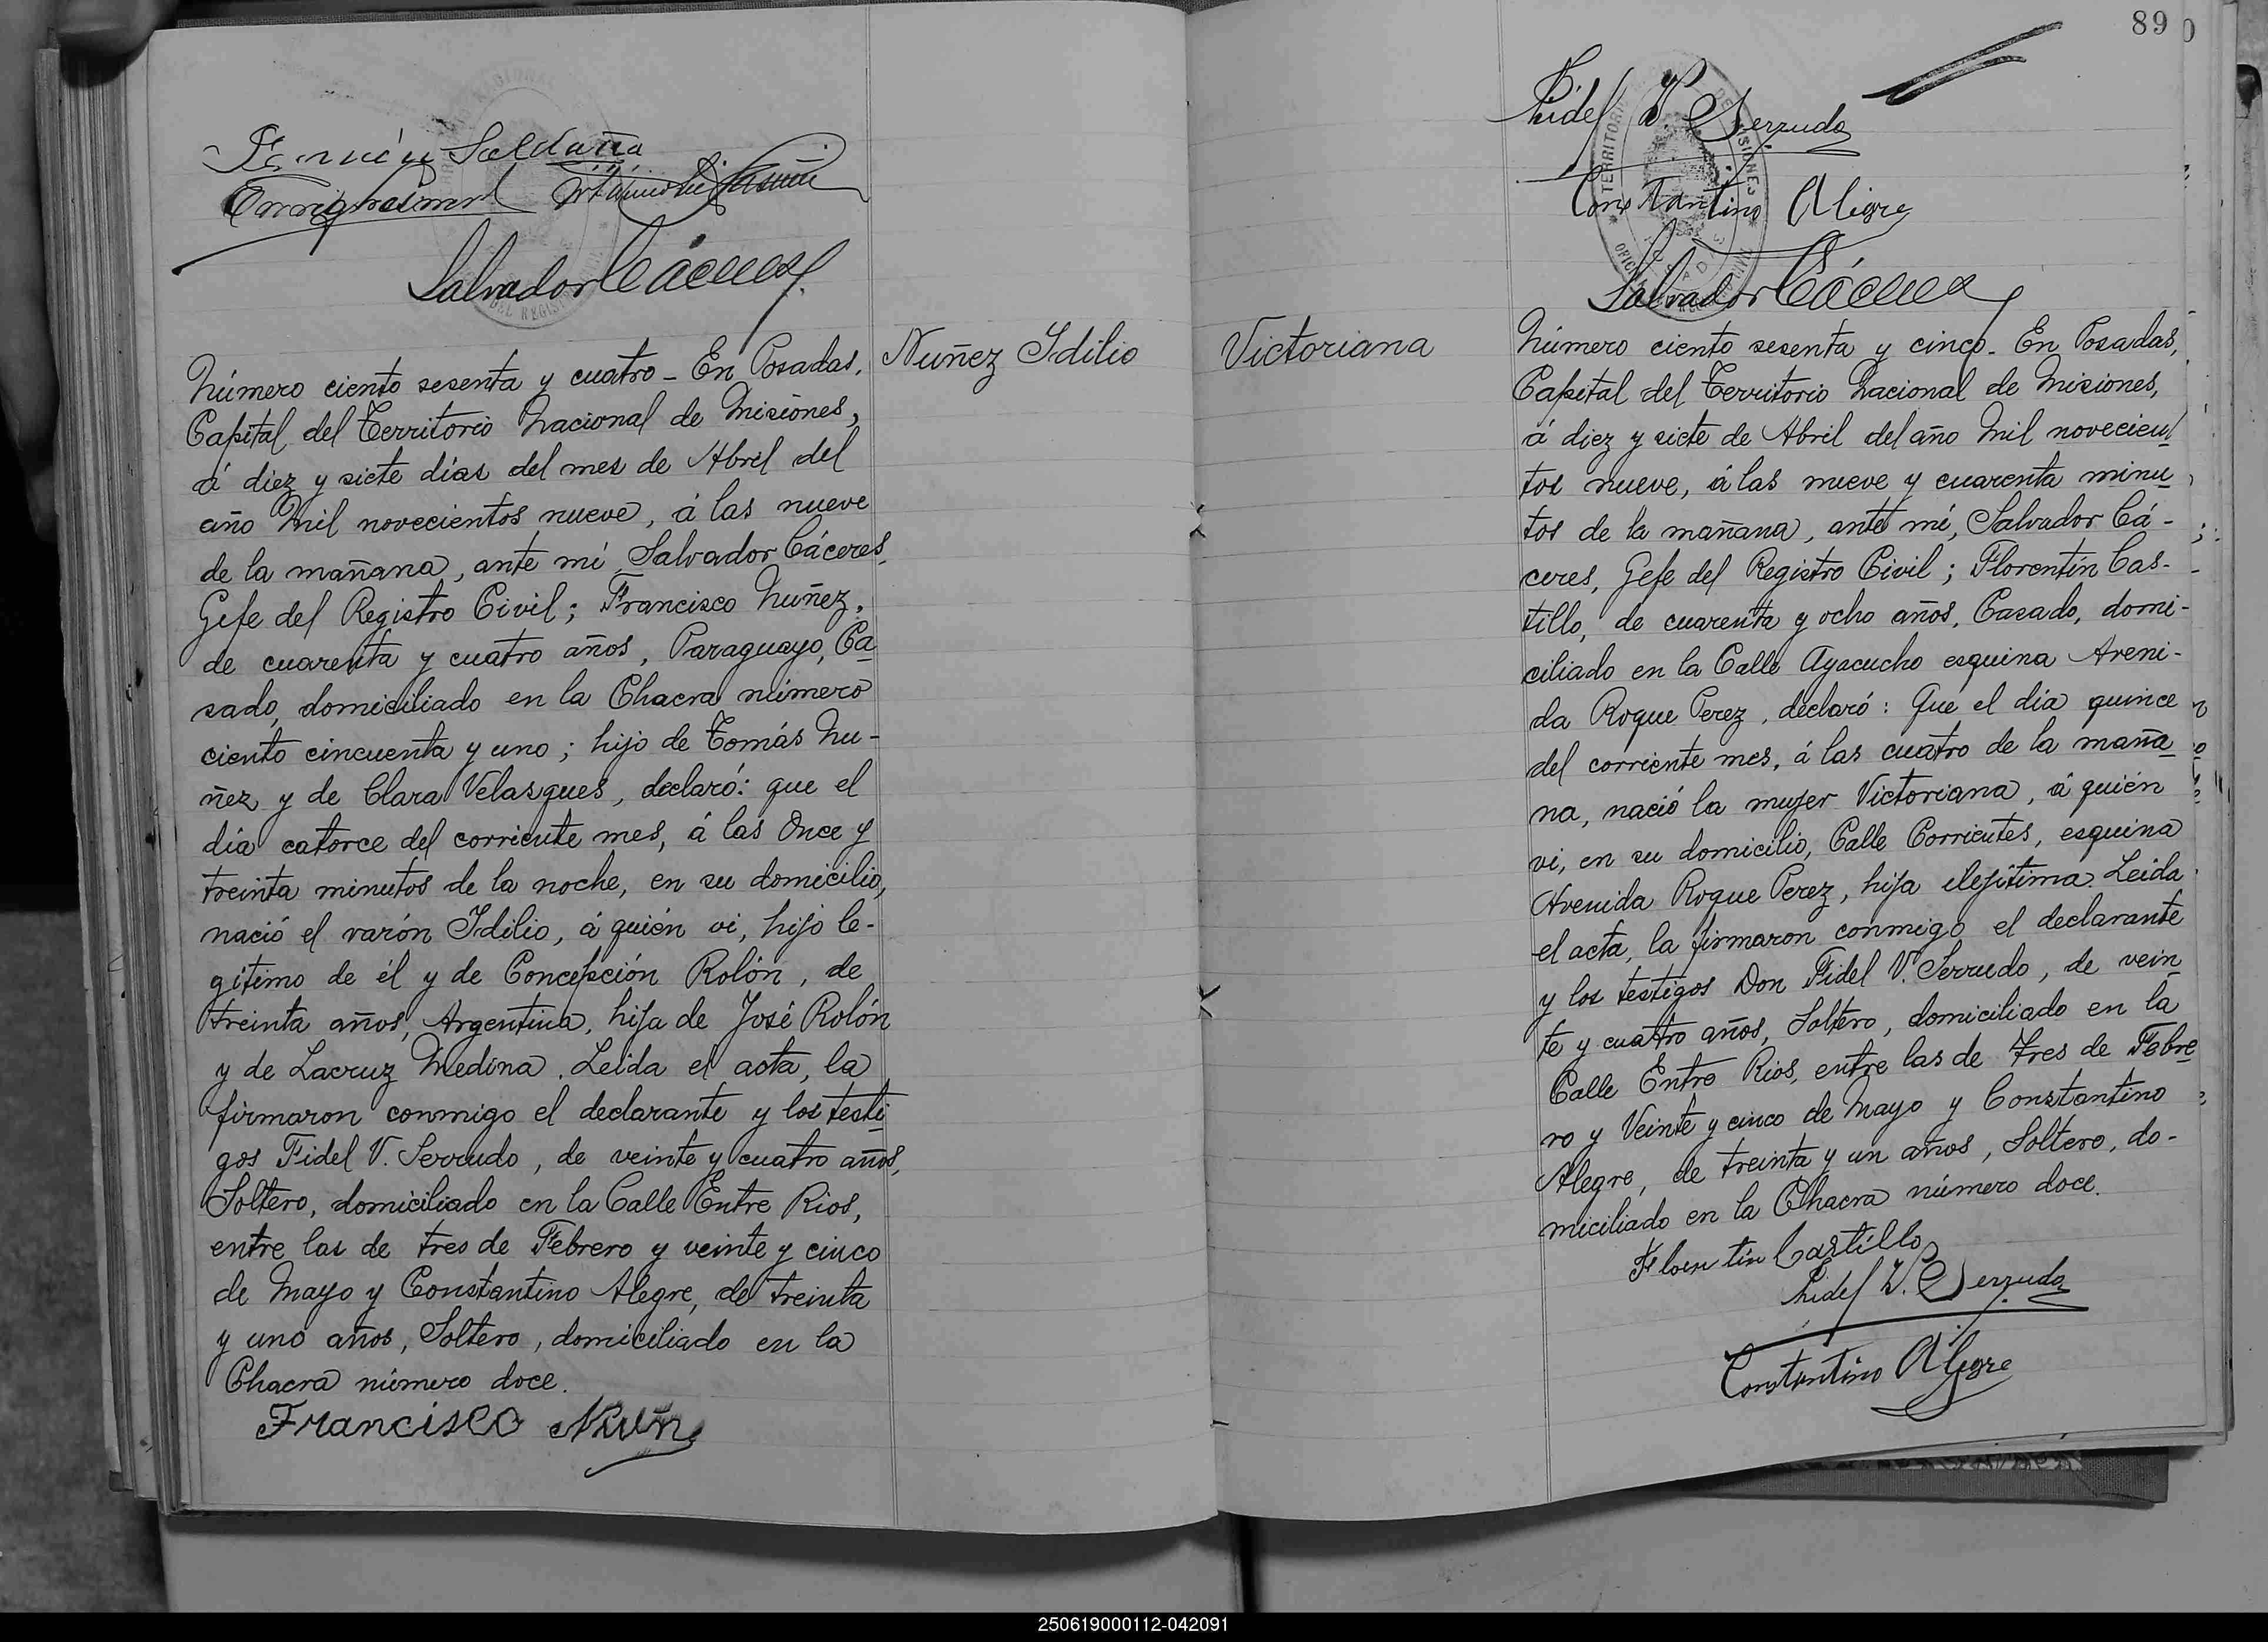 Saldaña
Salvador Cáceres
Número ciento sesenta y cuatro - En Posadas,
Capital del Territorio Nacional de Misiones,
á diez y siete días del mes de Abril del
año Mil novecientos nueve, á las nueve
de la mañana, ante mí Salvador Cáceres,
Gefe del Registro Civil; Francisco Nuñez,
de cuarenta y cuatro años, Paraguayo, Ca
sado, domiciliado en la Chacra número
ciento cincuenta y uno; hijo de Tomás Nu-
ñez y de Clara Velasques, declaró: que el
día catorce del corriente mes, á las Once y
treinta minutos de la noche, en su domicilio,
nació el varón Idilio, á quién vi, hijo le-
gitimo de él y de Concepción Rolón, de
treinta años, Argentina, hija de José Rolón
y de Lacruz Medina. Leida el acta, la
firmaron conmigo el declarante y los testi
gos Fidel V. Serrudo, de veinte y cuatro años,
Soltero, domiciliado en la Calle Entre Rios,
entre las de tres de Febrero y veinte y cinco
de Mayo y Constantino Alegre, de treinta
y uno años, Soltero, domiciliado en la
Chacra número doce.
Francisco Nuñ
Nuñez Idilio
Victoriana
89
Fidel V. Serrudo
Constantino Alegre
Salvador Cáceres
Número ciento sesenta y cinco - En Posadas,
Capital del Territorio Nacional de Misiones,
á diez y siete de Abril del año Mil novecien
tos nueve, á las nueve y cuarenta minu
tos de la mañana, ante mí, Salvador Cá-
ceres, Gefe del Registro Civil; Florentín Cas-
tillo, de cuarenta y ocho años, Casado, domi-
ciliado en la Calle Ayacucho esquina Aveni-
da Roque Perez, declaró: Que el día quince
del corriente mes, á las cuatro de la maña
na, nació la mujer Victoriana, á quién
vi, en su domicilio, Calle Corrientes, esquina
Avenida Roque Perez, hija ilejítima. Leida
el acta, la firmaron conmigo el declarante
y los testigos Don Fidel V. Serrudo, de vein
te y cuatro años, Soltero, domiciliado en la
Calle Entre Rios, entre las de tres de Febre
ro y Veinte y cinco de Mayo y Constantino
Alegre, de treinta y un años, Soltero, do-
miciliado en la Chacra número doce.
Florentín Castillo
Fidel V. Serrudo
Constantino Alegre
250619000112-042091